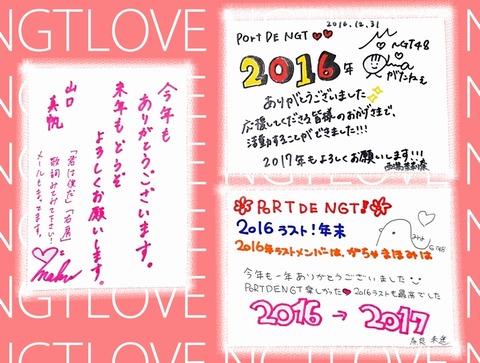 NGTLOVE
今年も
ありがとうございます。
来年もどうぞ
よろしくお願いします。
「君は僕だ」「右肩」
歌詞みてみて下さい!
メールもまってます。
山口
真帆
2016.12.31
PORT DE NGT♥♥
NGT48
がたねぇ
2016年
ありがとうございました
応援してくださる皆様のおかげさまで、
活動することができました!!!
2017年もよろしくお願いします!!!
西潟茉莉奈
☆PORT DE NGT!☆
2016ラスト!年末
2016年ラストメンバーは、がちゃまほみは
今年も一年ありがとうございました
PORTDENGT楽しかった♥2016ラストも最高でした
2016→2017
奈良未遥
NGTLOVE